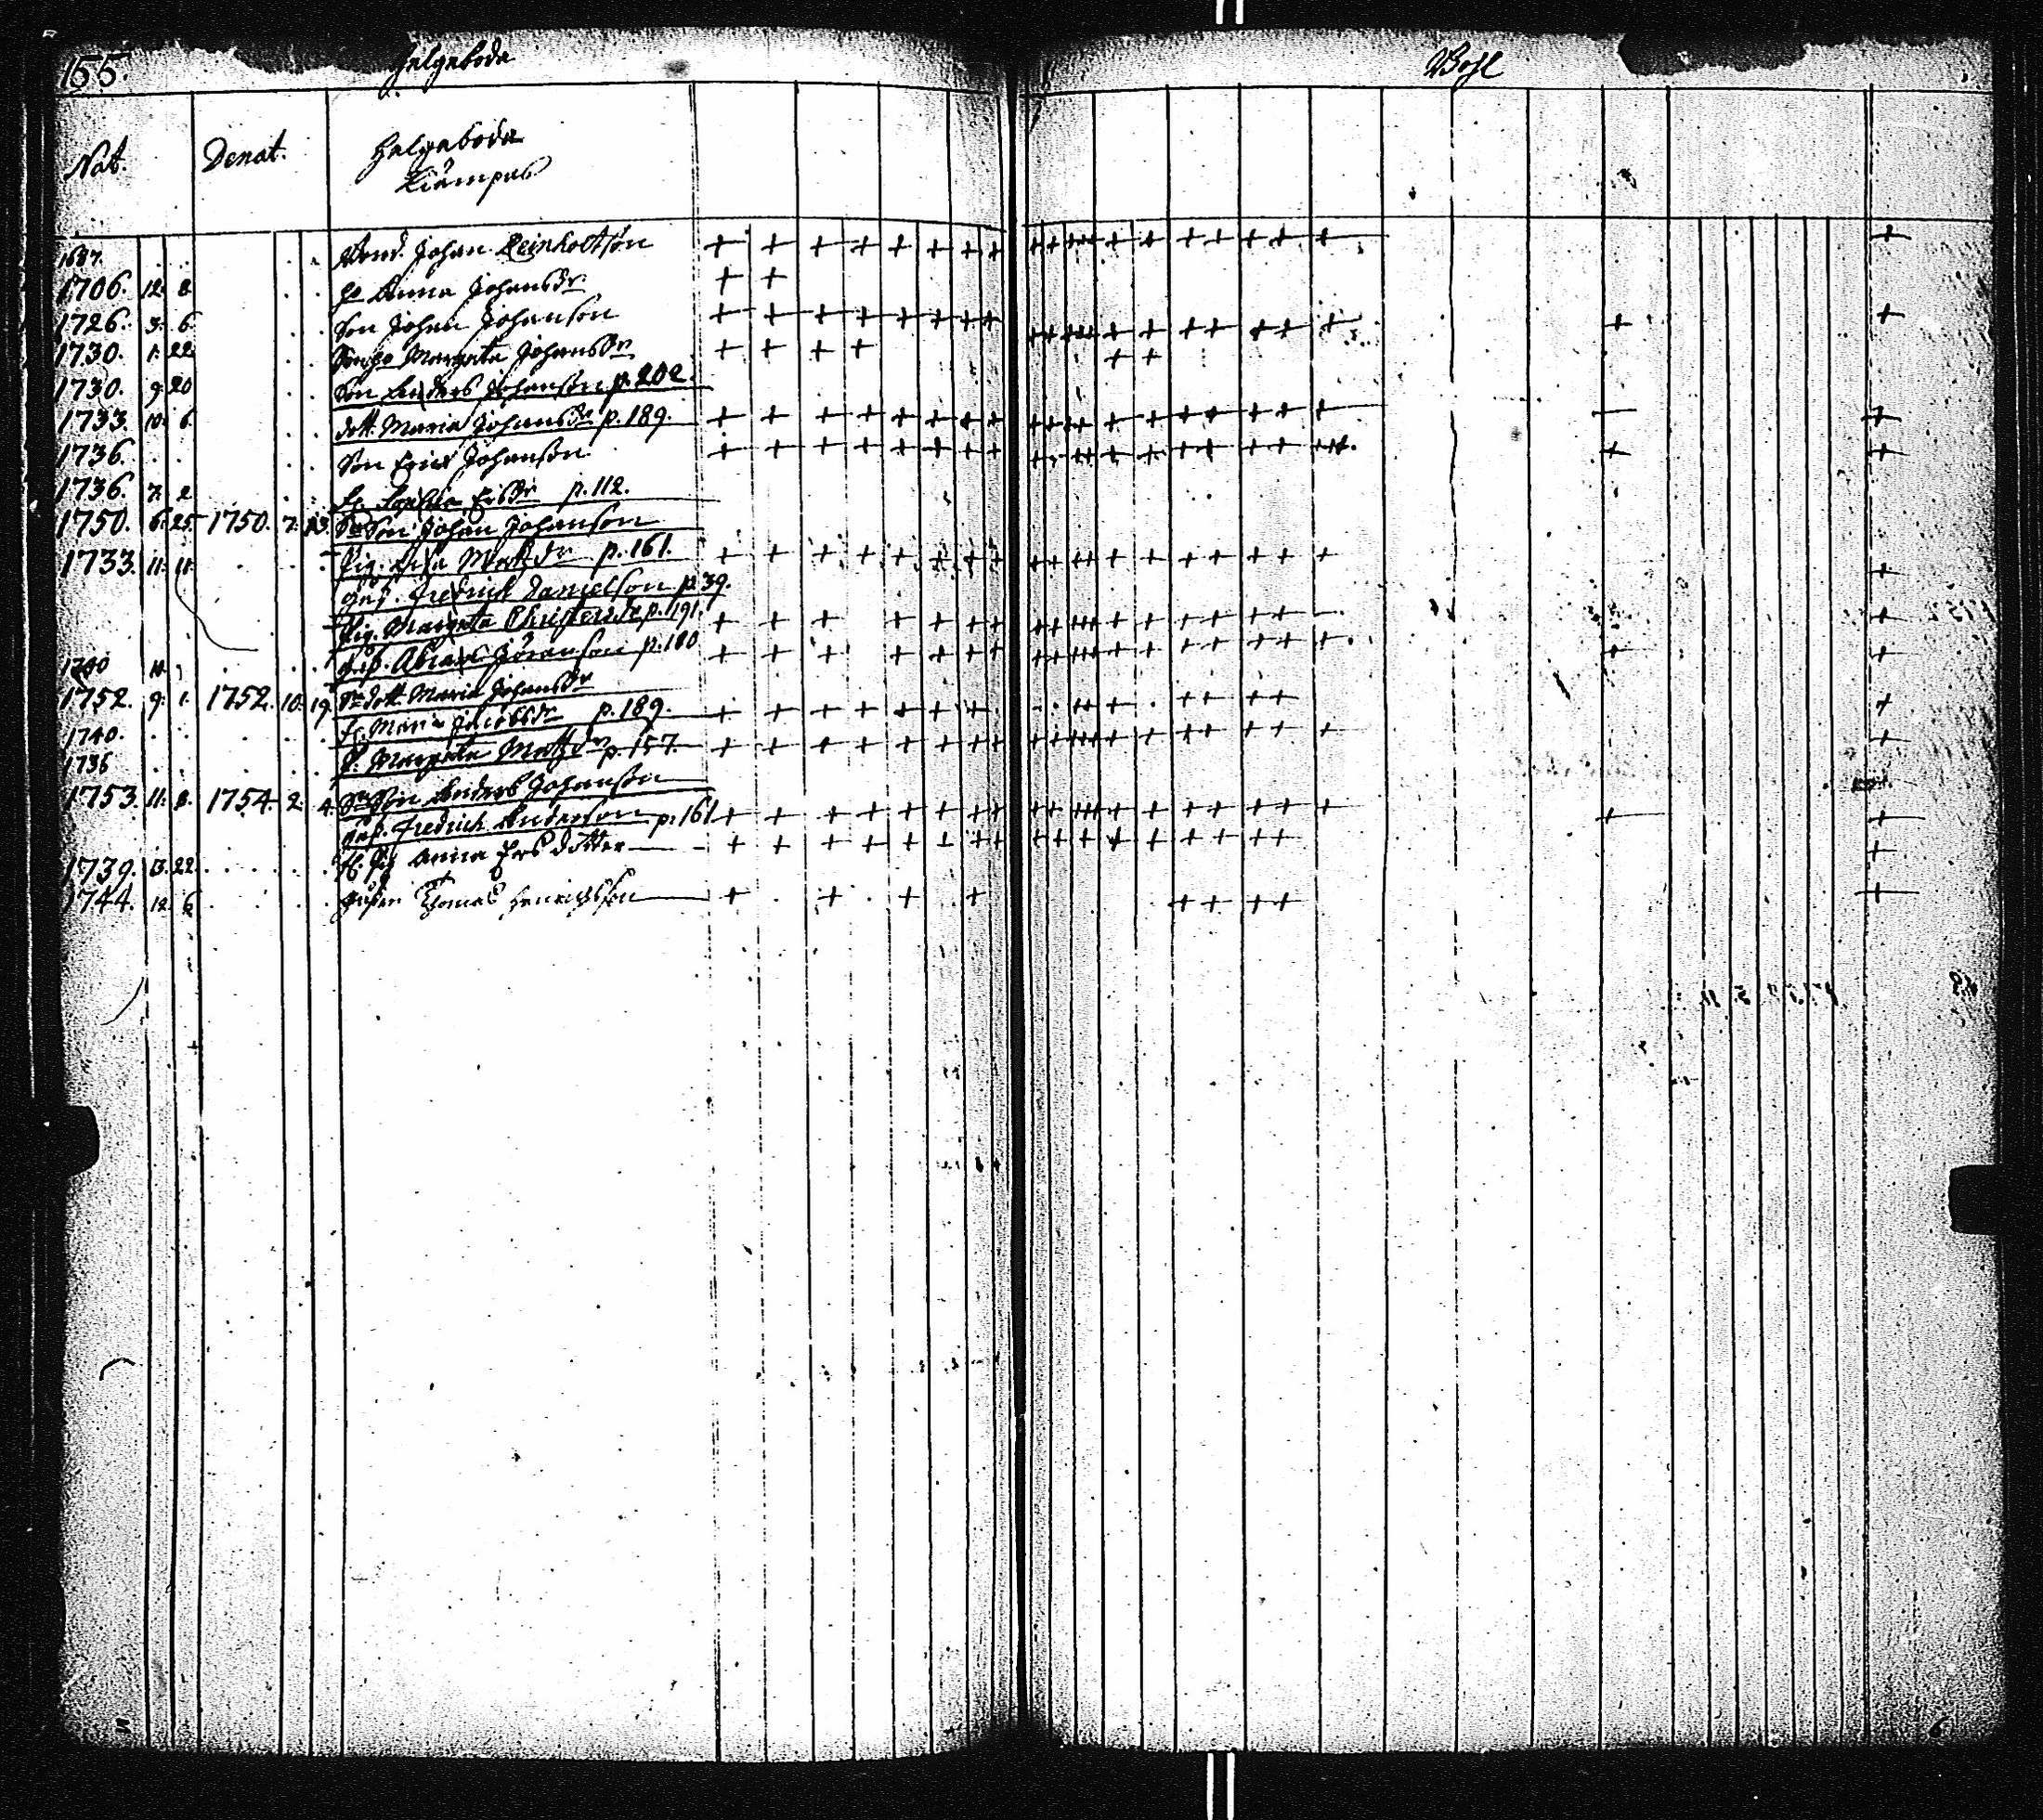 155. Helgaboda Bohl
Nat. Denat. Helgaboda
Kiämpas
1687. Bond. Johan Reinholtson
1706. 12. 8. H. Anna Johansdr
1726. 3. 6. Son Johan Johanson
1730. 1. 22. Margeta Johansdr
1730. 9. 20 Son Anders Johanson p. 202.
1733. 10. 6. dott. Maria Johansdr p. 189.
1736. Son Eric Johanson
1736. 7. 2 Ersdr p. 112.
1750. 6. 25 1750. 7. Son Johan Johanson
1733. 11. 11. Pig. Lisa Matzdr p. 161.
Fredrich Danielson p. 39.
Pig. Margeta Christersdr p. 191.
1740 Johanson p. 180
1752. 9. 1. 1752. 10. 19. dott. Maria Johansdr
1740. H. Maria Jacobsdr p. 189.
1736 P. Margeta Matzdr p. 157.
1753. 11. 8. 1754. 2. 4. Son Anders Johanson
Fredrich Anderson p. 161
1739. 22. Anna Ersdotter
1744. 12. 6 Thomas Henrichsson